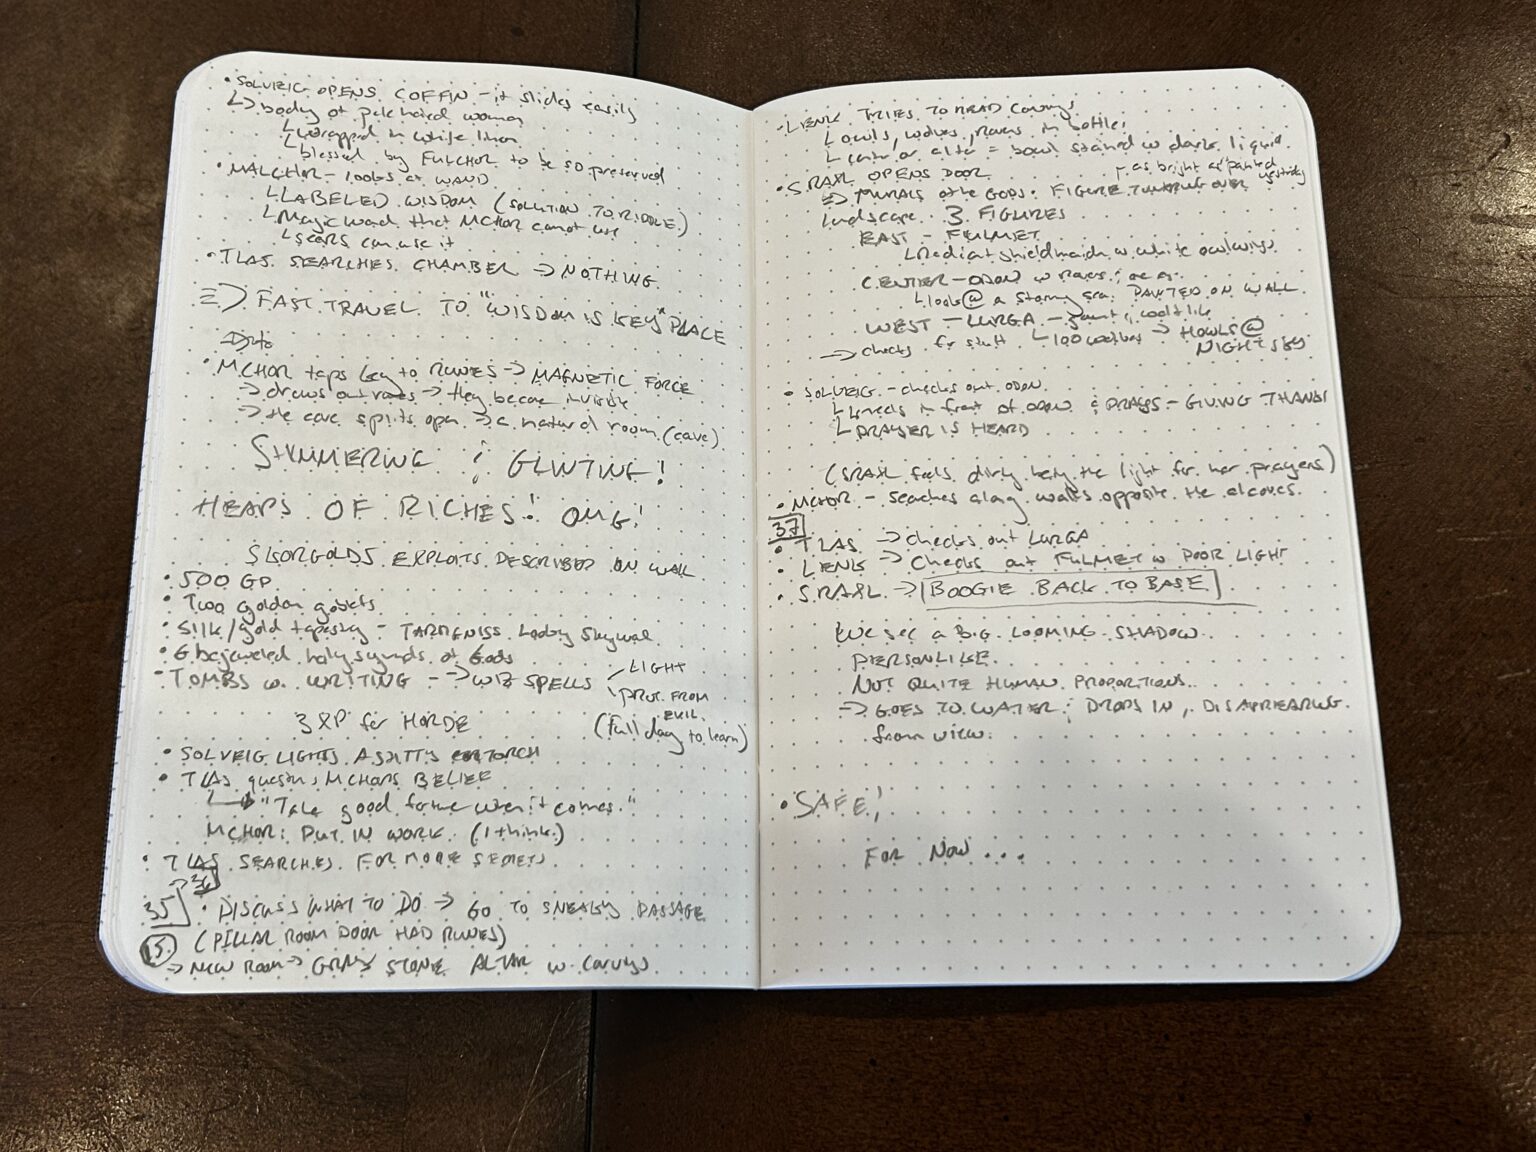 • SOLVEIG OPENS COFFIN - it slides easily
↳ body of pale haired woman
↳ wrapped in white linen
↳ blessed by FULCHOR to be so preserved
• MALCHOR - looks at WAND
↳ LABELED WISDOM (SOLUTION TO RIDDLE)
↳ Magic wand that MCHOR cannot use
↳ seers can use it
• TLAS SEARCHES CHAMBER → NOTHING
⇒ FAST TRAVEL TO "WISDOM IS KEY" PLACE
• MCHOR taps key to RUNES → MAGNETIC FORCE
→ draws out runes → they become invisible
→ the cave splits open → a natural room (cave)
SHIMMERING & GLINTING!
HEAPS OF RICHES! OMG!
EXPLOITS DESCRIBED ON WALL
• 500 GP
• Two golden goblets
• Silk/gold tapestry -
• 6 bejeweled holy symbols of Gods
• TOMBS w. WRITING → WIZ SPELLS
LIGHT
PROT. FROM EVIL
(full day to learn)
3 XP for HORDE
• SOLVEIG LIGHTS A SHITTY TORCH
• TLAS questions MCHORS BELIEF
↳ "Take good fortune when it comes."
MCHOR: PUT IN WORK (I think)
• TLAS SEARCHES FOR MORE SECRETS
36
35 • DISCUSS WHAT TO DO → GO TO SNEAKY PASSAGE
(PILLAR ROOM DOOR HAD RUNES)
15
→ NEW ROOM → GRAY STONE ALTAR w Carvings
- LIENK TRIES TO READ Carvings
↳ owls, wolves, ravens in battle
↳ center of altar = bowl stained w dark liquid
• SRAXL OPENS DOOR
as bright as painted yesterday
⇒ MURALS of the GODS. FIGURE TOWERING OVER
landscape 3 FIGURES
EAST - FULMET
↳ Radiant shieldmaiden w white owl wings
CENTER - ODON w Ravens
↳ looks @ a stormy sea PAINTED ON WALL
WEST - LURGA - gaunt & wolf like
→ HOWLS @ NIGHT SKY
→ checks for stuff
• SOLVEIG - checks out ODON
↳ kneels in front of ODON & PRAYS - GIVING THANKS
↳ PRAYER IS HEARD
(SRAXL feels dirty being the light for her prayers)
• MCHOR - searches along walls opposite the alcoves.
37
• TLAS → checks out LURGA
• LIENK → Checks out FULMET w POOR LIGHT
• SRAXL → BOOGIE BACK TO BASE
WE see A BIG LOOMING SHADOW
PERSONLIKE
NOT QUITE HUMAN PROPORTIONS
→ GOES TO WATER & DROPS IN, DISAPPEARING
from view.
• SAFE!
FOR NOW...